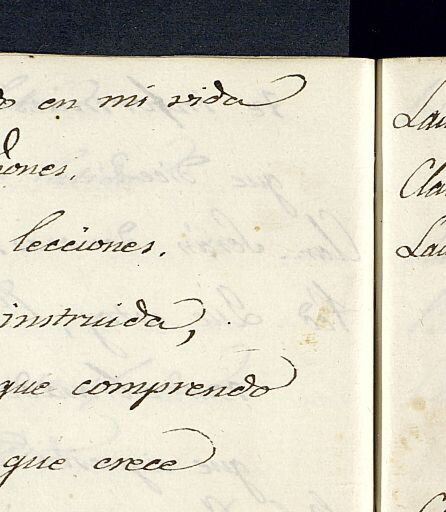 en mi vida
lecciones.
instruida,
que comprendo
que crece
Lau
Cla
Lau